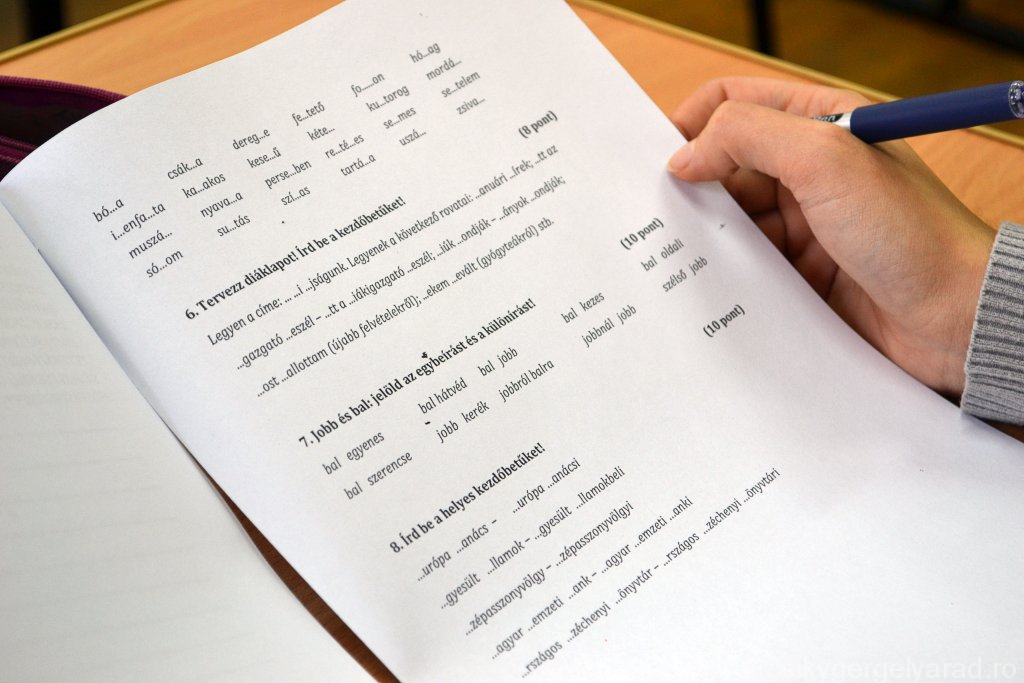 bó...a csák...a dereg...e fe...tető fo......on hó...ag
i...enfa...ta ka...akos kese...ű kéte... ku...tarog mordá...
muszá... nyava...a perse...ben re...té...es se...mes se...telem
só...om su...tás szí...as tartá...a uszá... zsiva...
(8 pont)
6. Tervezz diáklapot! Írd be a kezdőbetűket!
Legyen a címe: ... ...i ...jságunk. Legyenek a következő rovatai: ...anuári ...írek; ...tt az
...gazgató ...eszél – ...tt a ...iákigazgató ...eszél; ...iúk ...ondják – ...ányok ...ondják;
...ost ...allottam (újabb felvételekről); ...ekem ...evált (gyógyteákról) stb.
(10 pont)
7. Jobb és bal: jelöld az egybeírást és a különírást!
bal egyenes bal hátvéd bal jobb bal kezes bal oldali
bal szerencse jobb kerék jobbról balra jobbnál jobb szélső jobb
(10 pont)
8. Írd be a helyes kezdőbetűket!
...urópa ...anács – ...urópa ...anácsi
...gyesült ...llamok – ...gyesült ...llamokbeli
...zépasszonyvölgy – ...zépasszonyvölgyi
...agyar ...emzeti ...ank – ...agyar ...emzeti ...anki
...rszágos ...zéchenyi ...önyvtár – ...rszágos ...zéchenyi ...önyvtári